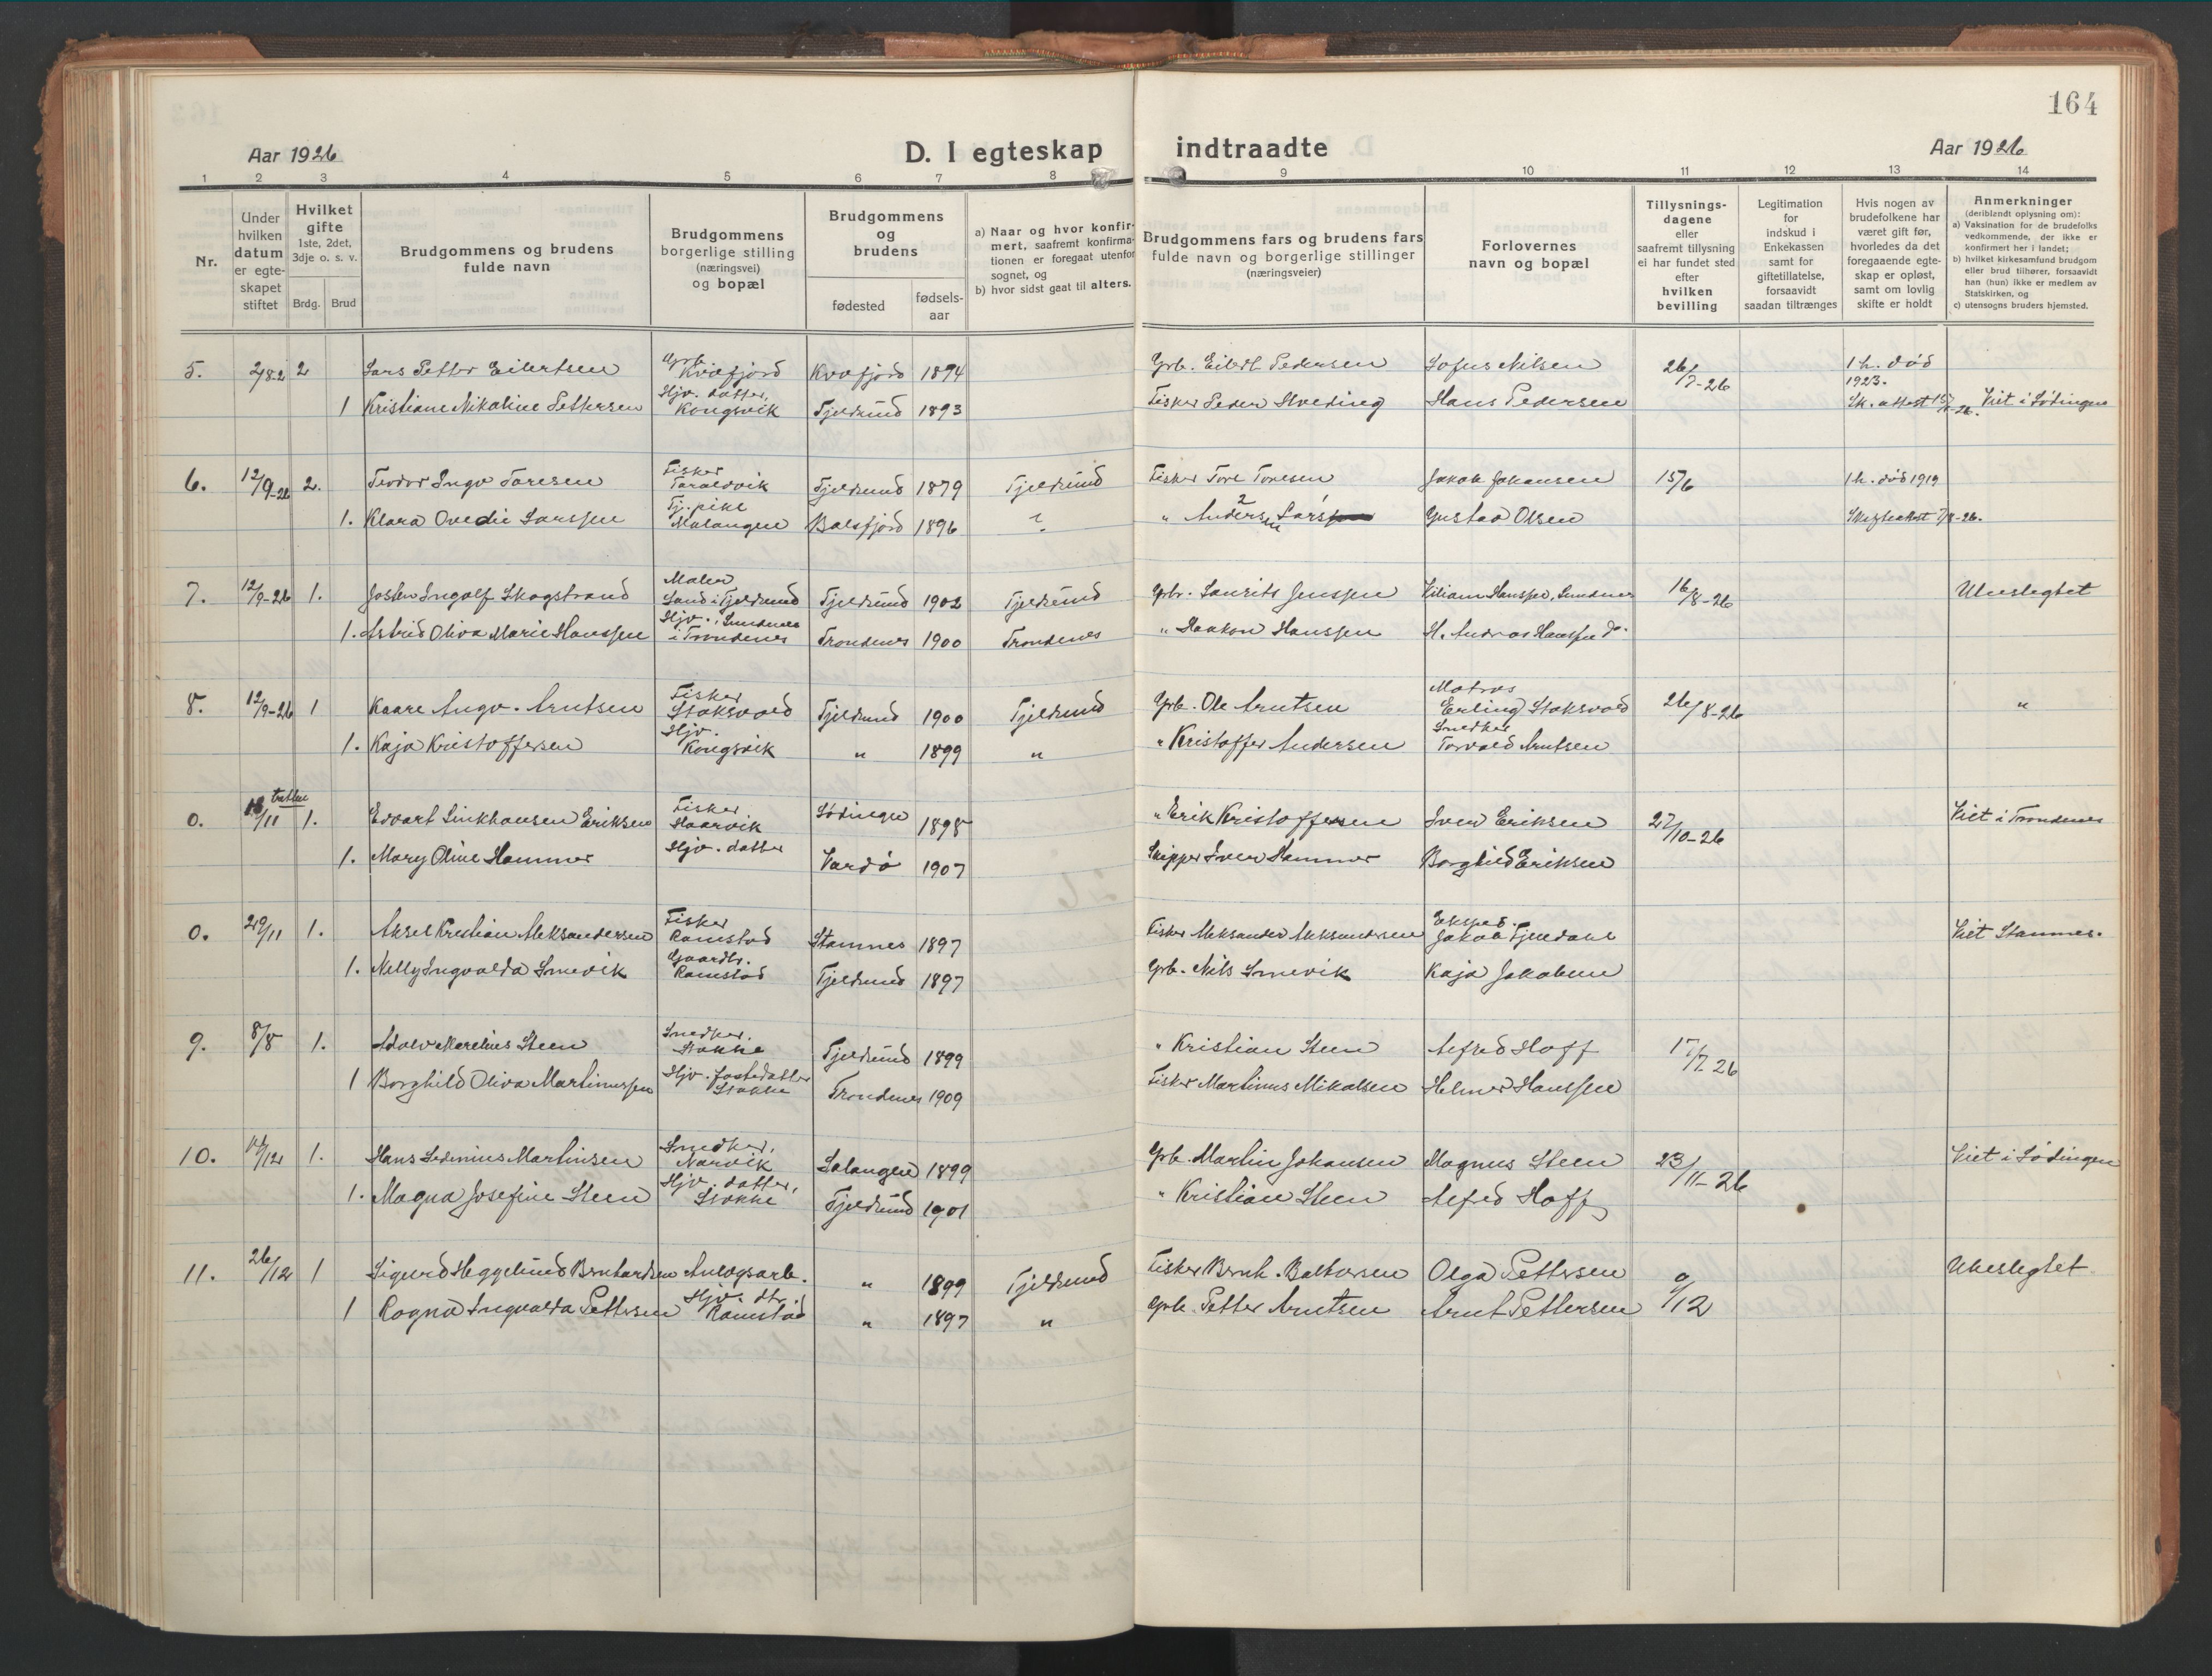 164
Aar 1926
D. I egteskap indtraadte
Aar 1926
1 2 3 4 5 6 7 8 9 10 11 12 13 14
Nr.
Under hvilken datum er egte-skapet stiftet
Hvilket gifte 1ste, 2det, 3dje o. s. v.
Brdg. Brud
Brudgommens og brudens fulde navn
Brudgommens borgerlige stilling (næringsvei) og bopæl
Brudgommens og brudens
fødested
fødsels-aar
a) Naar og hvor konfir-mert, saafremt konfirma-tionen er foregaat utenfor sognet, og
b) hvor sidst gaat til alters.
Brudgommens fars og brudens fars fulde navn og borgerlige stillinger (næringsveier)
Forlovernes navn og bopæl
Tillysnings-dagene eller saafremt tillysning ei har fundet sted efter hvilken bevilling
Legitimation for indskud i Enkekassen samt for giftetillatelse, forsaavidt saadan tiltrænges
Hvis nogen av brudefolkene har været gift før, hvorledes da det foregaaende egte-skap er opløst, samt om lovlig skifte er holdt
Anmerkninger (deriblandt oplysning om):
a) Vaksination for de brudefolks vedkommende, der ikke er konfirmert her i landet;
b) hvilket kirkesamfund brudgom eller brud tilhører, forsaavidt han (hun) ikke er medlem av Statskirken, og
c) utensogns bruders hjemsted.
5. 2 Lars Petter Eilertsen Grb. Kvæfjord Kvæfjord 1894 Grb. Eilert Pedersen Sofus Nilsen 26/7-26 1 h. død 1923.
1 Kristiane Nikoline Pettersen Hjv. datter, Kongsvik Tjeldsund 1893 Fisker Peder Hveding Hans Pedersen Sk. attest Viet i Lødingen
6. 12/9-26 2. Teodor Ingv Toresen Fisker Taraldvik Tjeldsund 1879 Tjeldsund Fisker Tore Toresen Jakob Johansen 15/6 1 h. død 1919
1. Klara Ovedie Larssen Tj. pike Malangen Balsfjord 1896 ? " Anders Lars Gustav Olsen Skifteattest 7/8-26.
7. 12/9-26 1. Josten Ingolf Skogstrand Maler Sand i Tjeldsund Tjeldsund 1902 Tjeldsund Grbr. Laurits Jenssen Viliam Hanssen, Sundnes 16/8-26 Ubeslegtet
1. Astrid Oliva Marie Hanssen Hjv., Sundnes i Trondenes Trondenes 1900 Trondenes " Haakon Hanssen H. Andreas Hanssen do.
8. 12/9-26 1 Kaare Angv. Arntsen Fisker Stoksvold Tjeldsund 1900 Tjeldsund Grb. Ole Arntsen Matros Erling Stoksvold 26/8-26 "
1. Kaja Kristoffersen Hjv. Kongsvik " 1899 " " Kristoffer Andersen Snedker Torvald Arntsen
0. /11 1. Edvart Linkhausen Eriksen Fisker Haarvik Lødingen 1898 " Erik Kristoffersen Iver Eriksen 27/10-26 Viet i Trondenes
1. Mary Oline Hammer Hjv. datter Vardø 1907 Skipper Iver Hammer Borghild Eriksen
0. 29/11 1. Aksel Kristian Aleksandersen Fisker Ramstad Stamnes 1897 Fisker Aleksander Aleksandersen Eksped. Jakob Tjeldahl Viet Stamnes.
1. Nelly Ingvalda Smevik Gaardbr. Ramstad Tjeldsund 1897 Grb. Nils Smevik Kaja Jakobsen
9. 8/8 1. Adolv Marelius Steen Snedker. Stokke Tjeldsund 1899 " Kristian Steen Alfred Hoff 17/7 26
1 Borghild Oliva Martinussen Hjv. fosterdatter Stokke Trondenes 1909 Fisker Martinus Mikalsen Helmer Hanssen
10. /12 1. Hans Sedenius Martinsen Snedker, Narvik Salangen 1899 Grb. Martin Johansen Magnus Steen 23/11-26 Viet i Lødingen
1. Magna Josefine Steen Hjv. datter, Stokke Tjeldsund 1901 " Kristian Steen Alfred Hoff
11. 26/12 1 Sigurd Heggelund Berntardsen Anlegsarb. " 1899 Tjeldsund Fisker Bernh. Baltarsen Olga Pettersen 9/12 Ubeslegtet.
1 Ragna Ingvalda Pettersen Hjv. dtr., Ramstad " 1897 " Grb. Petter Arntsen Arnt Pettersen